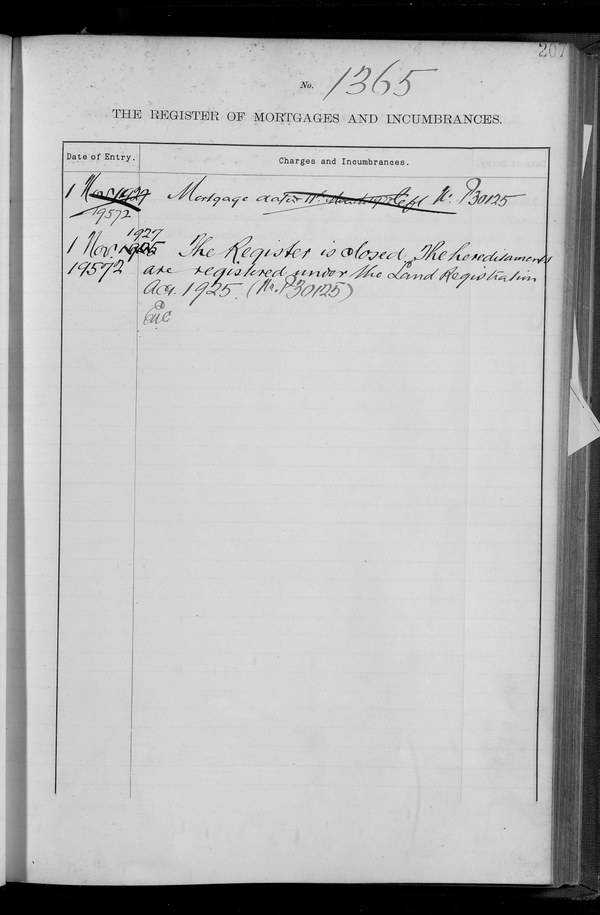 207
No. 1365
THE REGISTER OF MORTGAGES AND INCUMBRANCES.
Date of Entry.
Charges and Incumbrances.
1 Nov. 1927
19572
Mortgage dated No. P30125
1927
1 Nov. 1925
19572
The Register is closed. The hereditaments
are registered under the Land Registration
Act. 1925. (No. P30125)